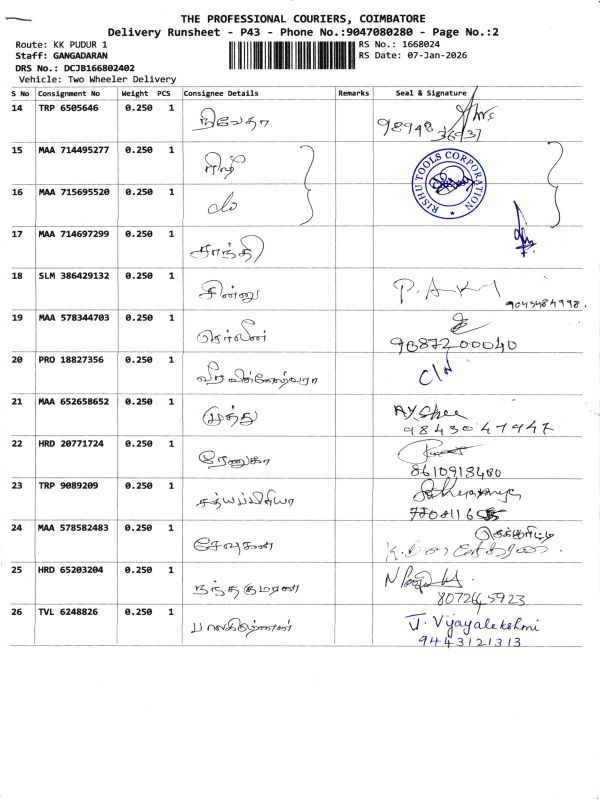 THE PROFESSIONAL COURIERS, COIMBATORE
Delivery Runsheet - P43 - Phone No.:9047080280 - Page No.:2
Route: KK PUDUR 1
Staff: GANGADARAN
DRS No.: DCJB166802402
Vehicle: Two Wheeler Delivery
RS No.: 1668024
RS Date: 07-Jan-2026
S No Consignment No Weight PCS Consignee Details Remarks Seal & Signature
14 TRP 6505646 0.250 1 நிவேதா 98948 36937
15 MAA 714495277 0.250 1 ரிஷி
RISHU TOOLS CORPORATION
16 MAA 715695520 0.250 1 do
17 MAA 714697299 0.250 1 சாந்தி
18 SLM 386429132 0.250 1 சின்னு
19 MAA 578344703 0.250 1 செர்லின் 9087200040
20 PRO 18827356 0.250 1
21 MAA 652658652 0.250 1 முத்து
9843047947
22 HRD 20771724 0.250 1 ரேணுகா
8610918480
23 TRP 9089209 0.250 1 சத்யப்பிரியா
24 MAA 578582483 0.250 1 சேவுகன்
செக்யூரிட்டி
25 HRD 65203204 0.250 1 நந்தகுமரன்
26 TVL 6248826 0.250 1 பாலகிருஷ்ணன் J. Vijayalekshmi
9443121313